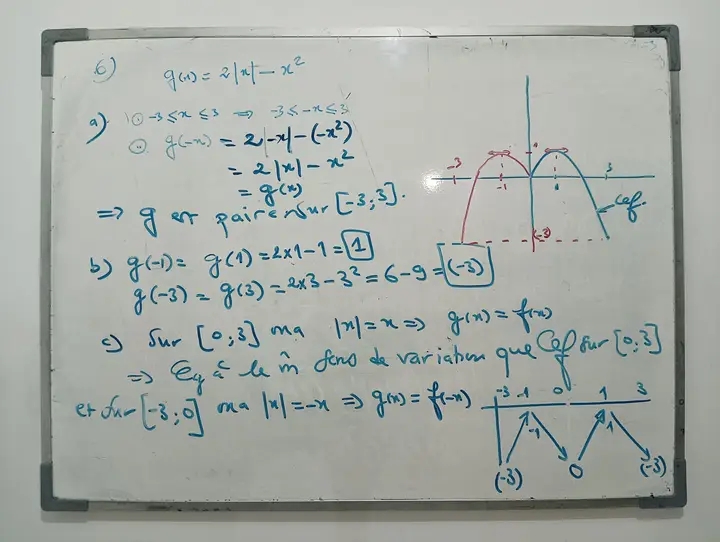 6) g(x) = 2|x| - x²
a) ⊙ -3 ≤ x ≤ 3 ⇒ -3 ≤ -x ≤ 3
⊙ g(-x) = 2|-x| - (-x²)
= 2|x| - x²
= g(x)
⇒ g est paire sur [-3;3].
b) g(-1) = g(1) = 2x1 - 1 = 1
g(-3) = g(3) = 2x3 - 3² = 6 - 9 = (-3)
c) Sur [0;3] ma |x| = x ⇒ g(x) = f(x)
⇒ Cg a le m̂ sens de variation que Cf sur [0;3]
et sur [-3;0] ma |x| = -x ⇒ g(x) = f(-x)
-3 -1 1 3
1
(-3)
Cf
-3 -1 0 1 3
-1 1
(-3) 0 (-3)